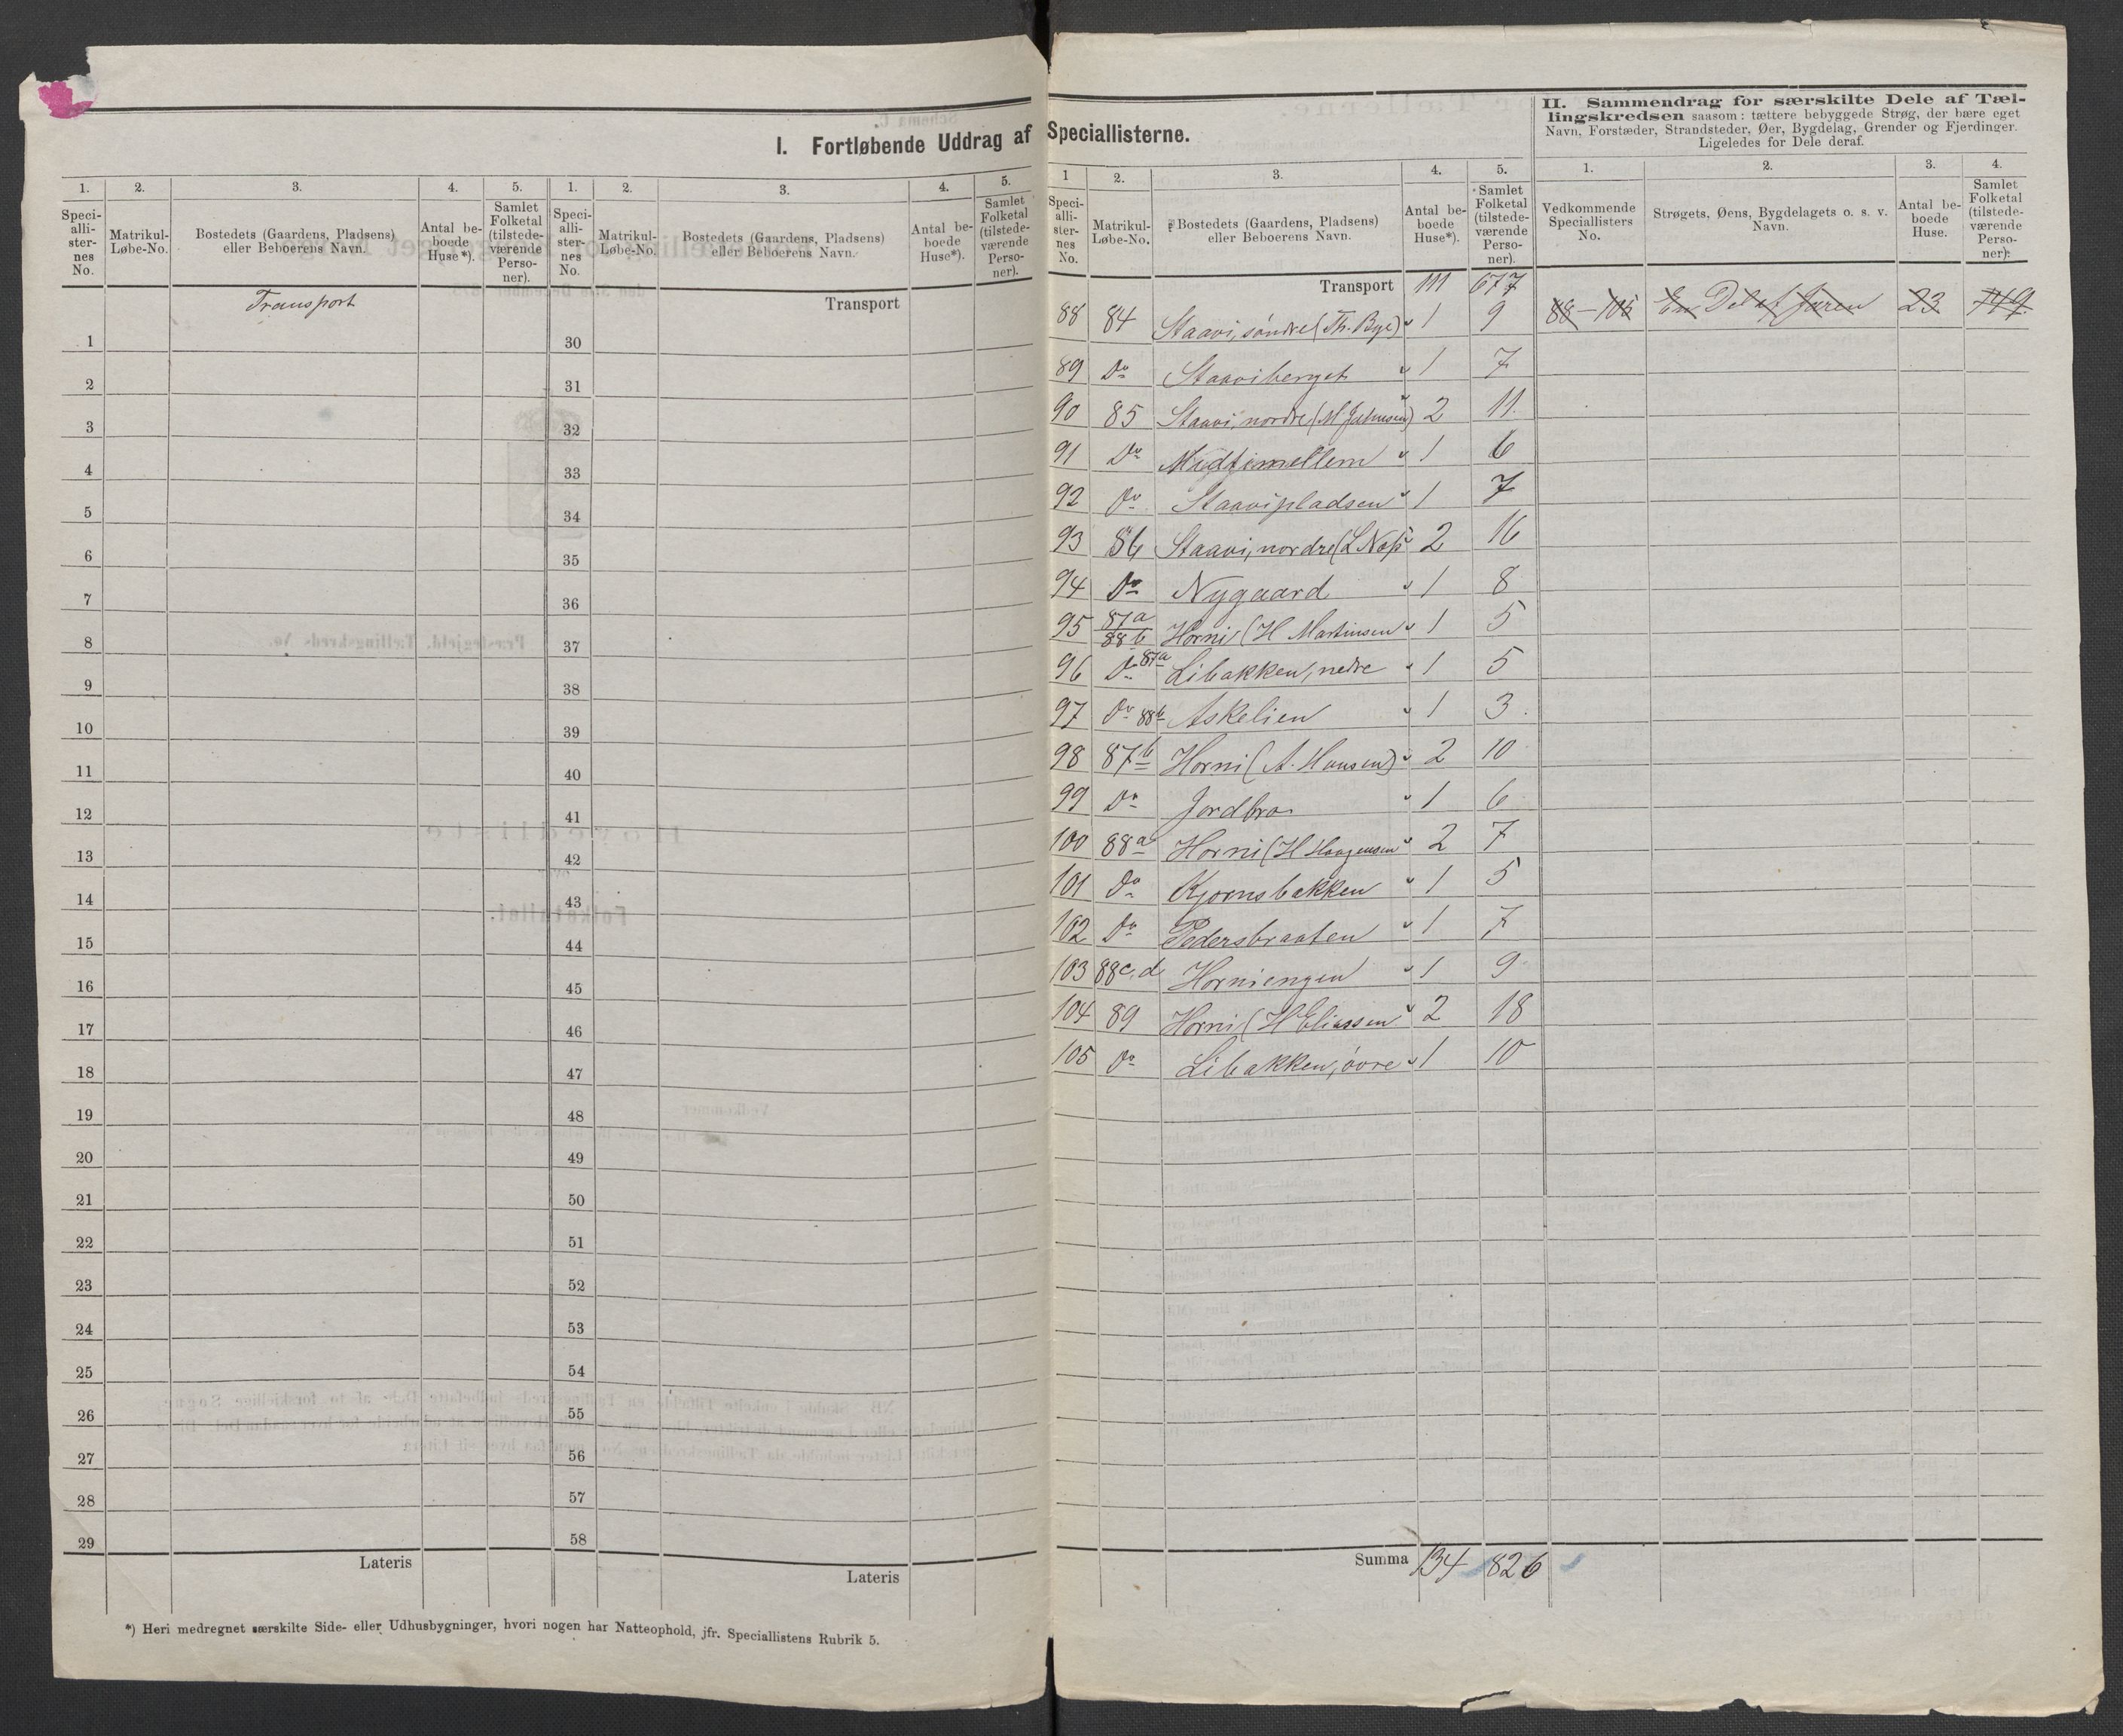 I. Fortløbende Uddrag af Speciallisterne.
1. 2. 3. 4. 5. 1. 2. 3. 4. 5.
Speciallisternes No. Matrikul-Løbe-No. Bostedets (Gaardens, Pladsens) eller Beboerens Navn. Antal beboede Huse*). Samlet Folketal (tilstedeværende Personer). Speciallisternes No. Matrikul-Løbe-No. Bostedets (Gaardens, Pladsens) eller Beboerens Navn. Antal beboede Huse*). Samlet Folketal (tilstedeværende Personer).
Transport Transport
1 30
2 31
3 32
4 33
5 34
6 35
7 36
8 37
9 38
10 39
11 40
12 41
13 42
14 43
15 44
16 45
17 46
18 47
19 48
20 49
21 50
22 51
23 52
24 53
25 54
26 55
27 56
28 57
29 58
Lateris Lateris
*) Heri medregnet særskilte Side- eller Udhusbygninger, hvori nogen har Natteophold, jfr. Speciallistens Rubrik 5.
1 2. 3. 4. 5.
Speciallisternes No. Matrikul-Løbe-No. Bostedets (Gaardens, Pladsens) eller Beboerens Navn. Antal beboede Huse*). Samlet Folketal (tilstedeværende Personer).
Transport 111 677
88 84 Staavi, söndre (Th. Bye) 1 9
89 Do Staaviberget 1 7
90 85 Staavi, nordre (M 2 11
91 Do Midtimellem 1 6
92 Do Staavipladsen 1 7
93 86 Staavi, nordre (L Næs 2 16
94 Do Nygaard 1 8
95 87a 88b Horni (H Martinsen 1 5
96 Do 87a Libakken, nedre 1 5
97 Do 88b Askelien 1 3
98 87b Horni (A. Hansen) 2 10
99 Do Jordbro 1 6
100 88a Horni (H Haagensen 2 7
101 Do Kjörnsbakken 1 5
102 Do Pedersbraaten 1 7
103 88c,d Horniengen 1 9
104 89 Horni (H Eliassen 2 18
105 Do Libakken, övre 1 10
Summa 134 826
II. Sammendrag for særskilte Dele af Tæl-
lingskredsen saasom: tættere bebyggede Strøg, der bære eget
Navn, Forstæder, Strandsteder, Øer, Bygdelag, Grender og Fjerdinger.
Ligeledes for Dele deraf.
1. 2. 3. 4.
Vedkommende Speciallisters No. Strøgets, Øens, Bygdelagets o. s. v. Navn. Antal beboede Huse. Samlet Folketal (tilstedeværende Personer).
88-105 En Del af Jaren 23 149